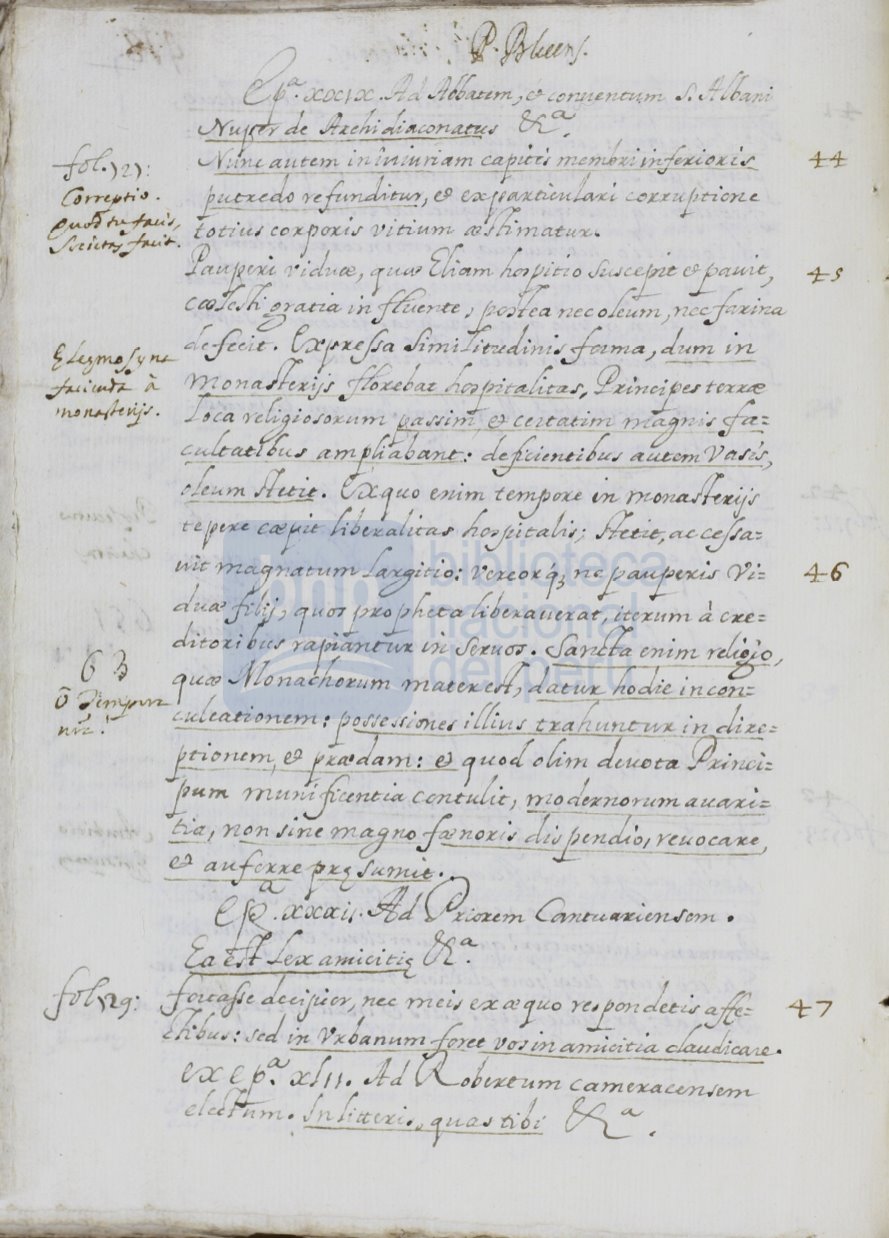 P. Blesens.
Epª. xxix. Ad Abbatem, & conventum S. Albani
Nuper de Archidiaconatus &ª.
fol. 121:
Nunc autem in iniuriam capitis membri inferioris
44
Correptio.
Quod tu facis,
Societas facit.
putredo refunditur, & ex particulari corruptione
totius corporis vitium æstimatur.
Pauperi viduæ, quæ Eliam hospitio suscepit & pavit,
45
cœlesti gratia influente, postea nec oleum, nec farina
defecit. Expressa similitudinis forma, dum in
Elęęmosyne
facienda à
monasterijs.
Monasterijs florebat hospitalitas, Principes terræ
Loca religiosorum passim, & certatim magnis fa=
cultatibus ampliabant: deficientibus autem Vasis,
oleum stetit. Ex quo enim tempore in monasterijs
tepere cæpit liberalitas hospitalis; stetit, ac cessa=
uit magnatum Largitio: Vereorq́; ne pauperis Vi=
46
duæ filij, quos propheta liberauerat, iterum à cre=
ditoribus rapiantur in servos. Sancta enim religio,
63
quæ Monachorum mater est, datur hodie in con=
ō Tempora
culcationem: possessiones illius trahuntur in dire=
ptionem, & prædam: & quod olim devota Princi=
pum munificentia contulit, modernorum auari=
tia, non sine magno fænoris dispendio, revocare,
& auferre pręsumit.
Epª. xxxii. Ad Priorem Cantuariensem.
Ea est Lex amicitię &ª.
fol. 129:
fortasse decipior, nec meis ex æquo respondetis affe=
47
ctibus: sed in Vrbanum foret vos in amicitia claudicare.
ex epª. xlii. Ad Robertum cameracensem
electum. In litteris, quas tibi &ª.
biblioteca
nacional
del perú